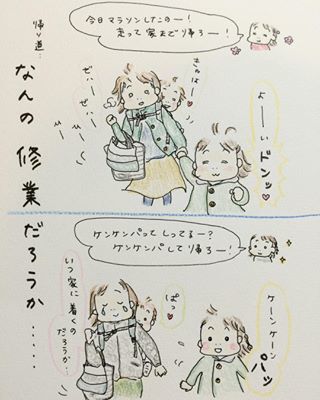 帰り道…
なんの修業だろうか……
今日マラソンしたのー！
走って家まで帰ろー！
きゃはー
よーい
ドンッ
ぜぃー
ぜぃー
ケンケンパってしってるー？
ケンケンパして帰ろー！
ケーンケーン
パッ
ぱっ
いつ家に着くの
だろうか…